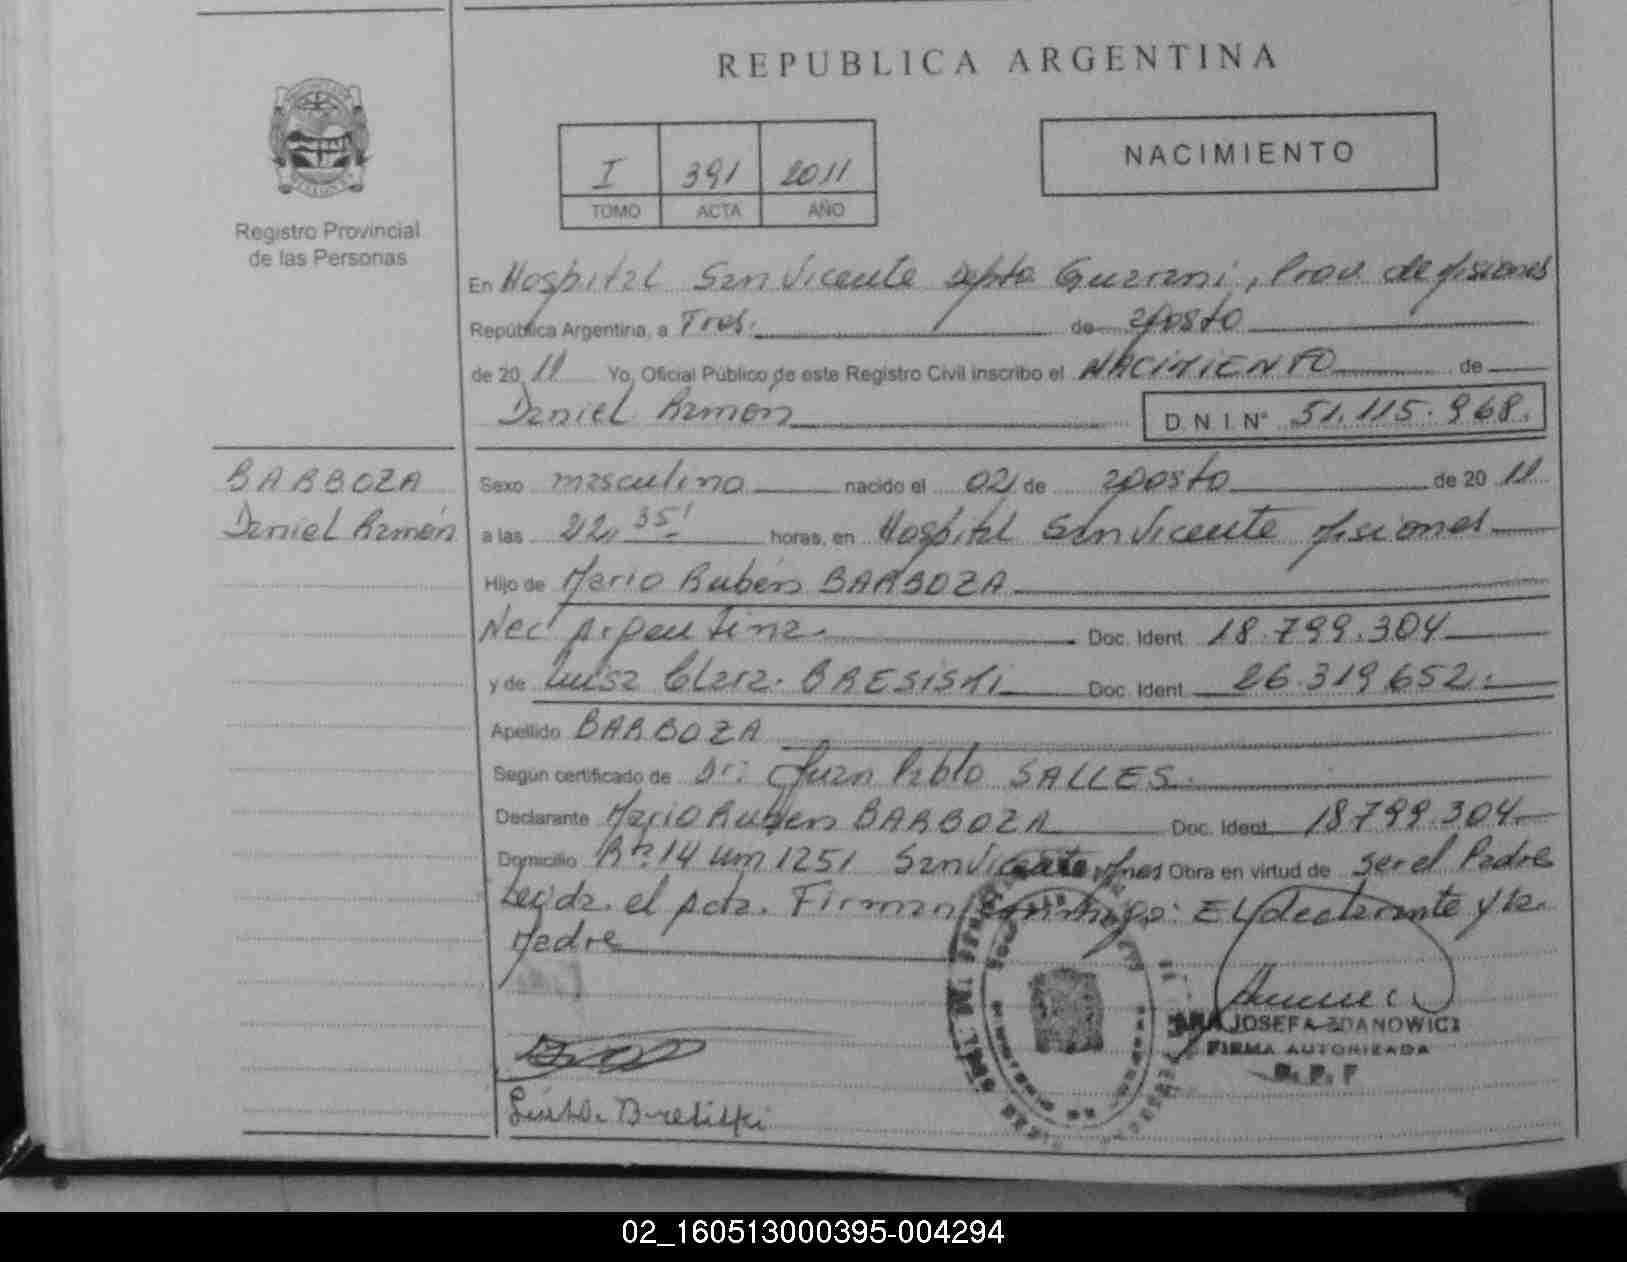 REPUBLICA ARGENTINA
I 391 2011
TOMO ACTA AÑO
NACIMIENTO
Registro Provincial
de las Personas
En Hospital San Vicente Depto Guarani, Prov. de Misiones
República Argentina, a Tres. de agosto
de 20 11 Yo, Oficial Público de este Registro Civil inscribo el NACIMIENTO de
Daniel Ramón D.N.I. Nº 51.115.968.
BARBOZA
Daniel Ramón
Sexo masculino nacido el 02 de agosto de 20 11
a las 22,35' horas, en Hospital San Vicente Misiones
Hijo de Mario Rubén BARBOZA
Nac Argentina. Doc. Ident. 18.799.304
y de Luisa Clara. BRESISKI Doc. Ident. 26.319.652.
Apellido BARBOZA
Según certificado de Dr: Juan Pablo SALLES.
Declarante Mario Ruben BARBOZA Doc. Ident. 18.799.304
Domicilio Rta. 14 Km 1251 San Vicente Mnes Obra en virtud de ser el Padre
Leyda. el Acta. Firman conmigo: El declarante y la.
Madre
JOSEFA ZDANOWICZ
FIRMA AUTORIZADA
02_160513000395-004294